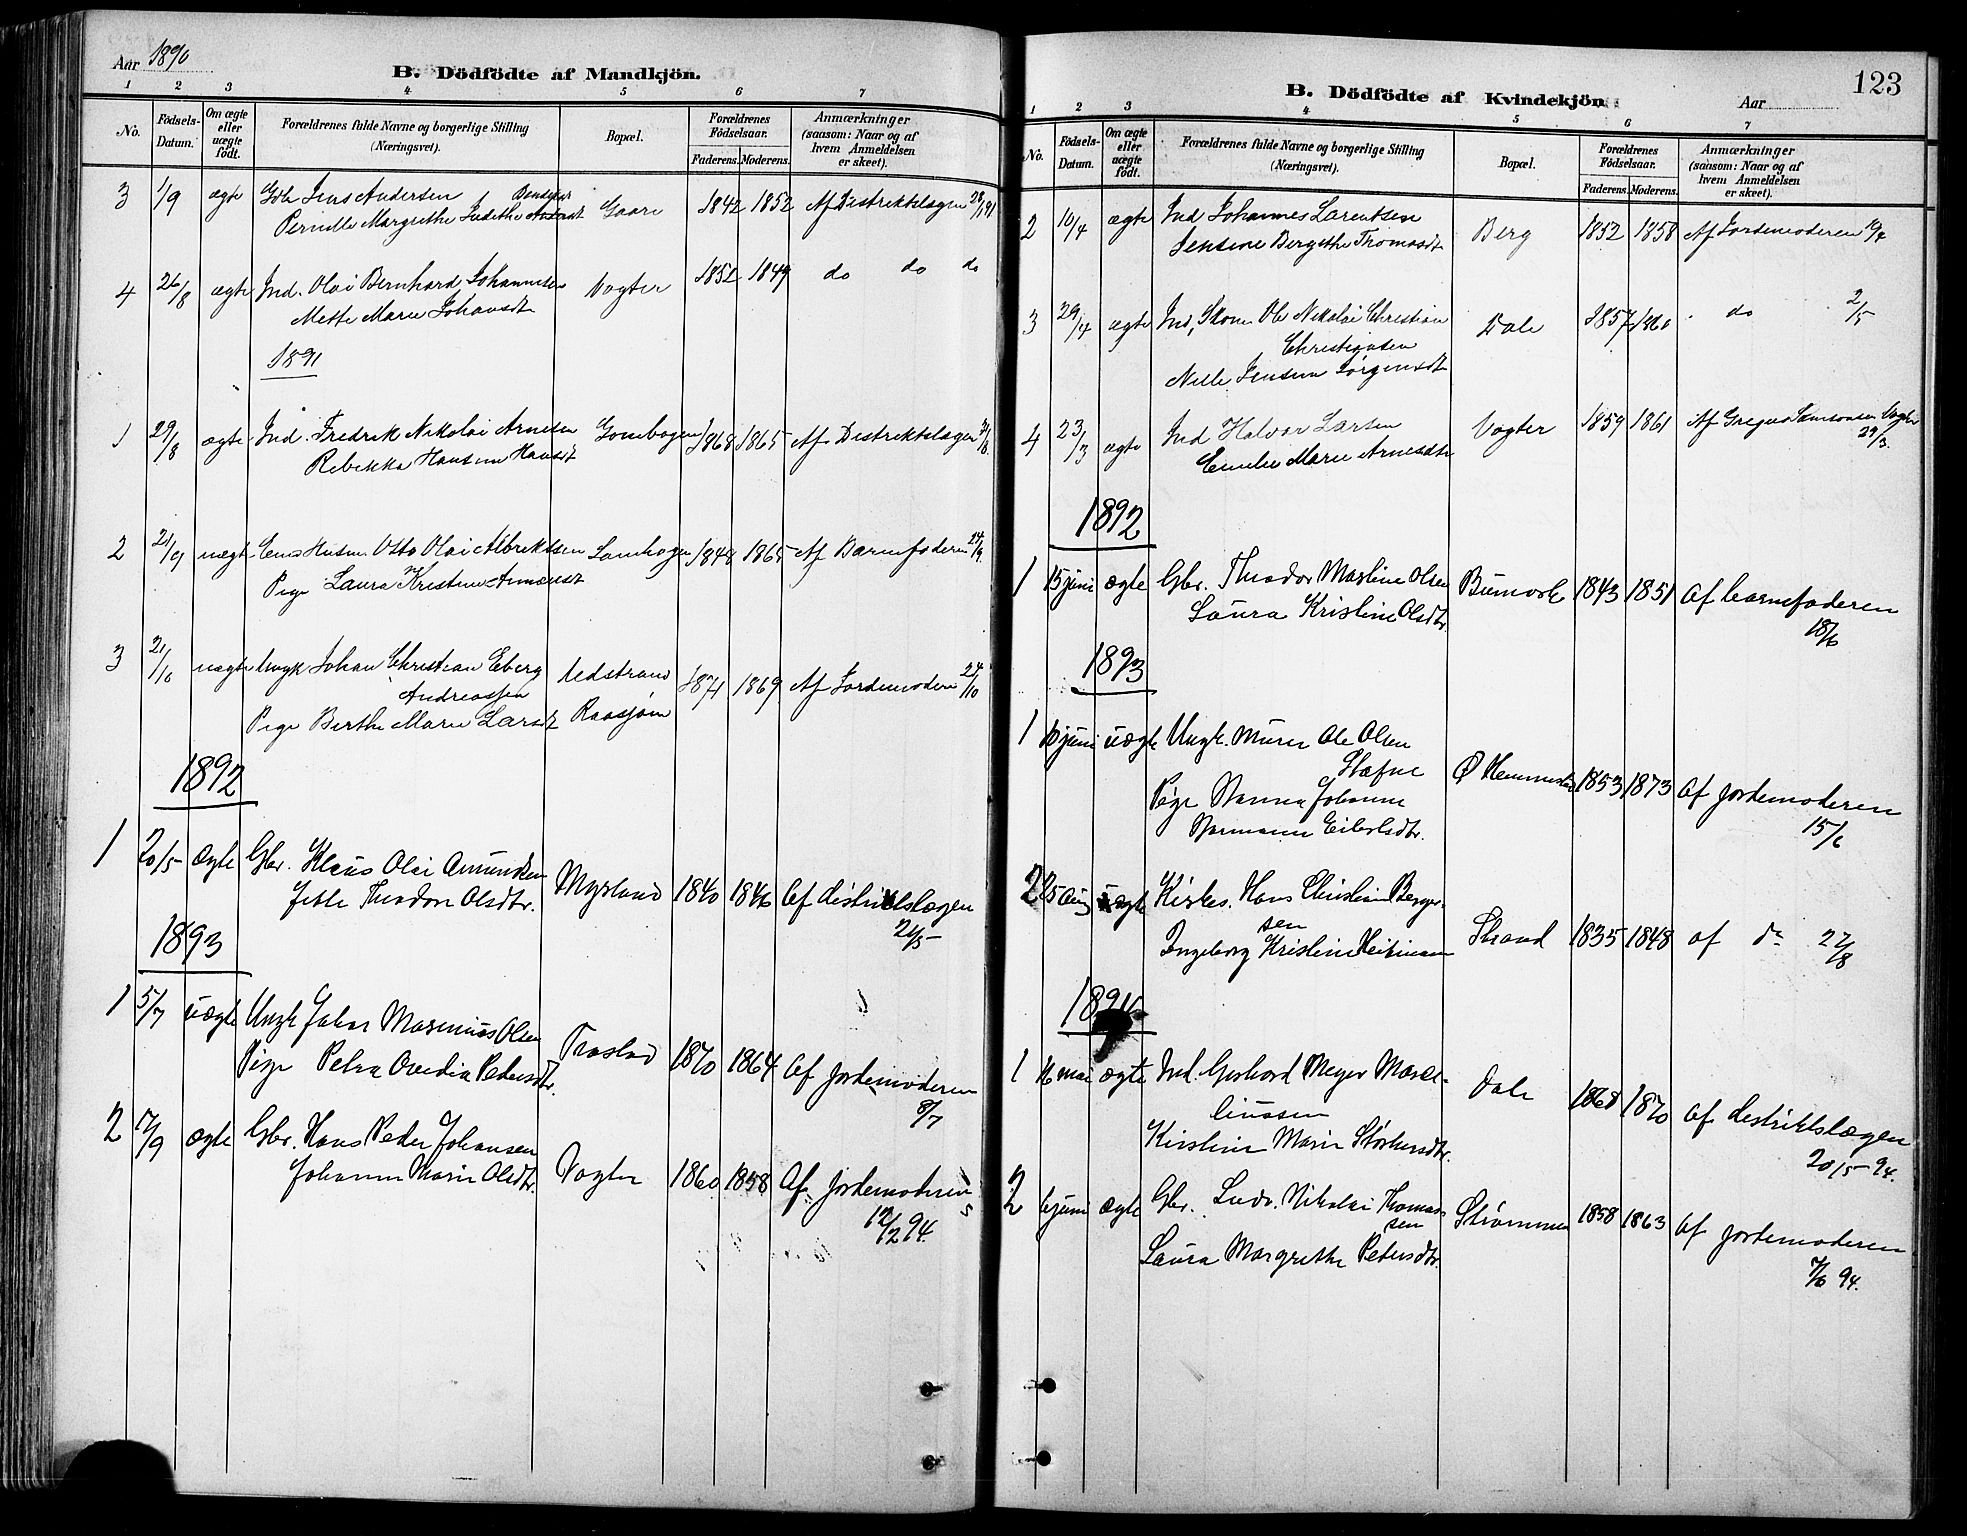 Aar 1890
B. Dödfödte af Mandkjön.
1 2 3 4 5 6 7
No. Födsels-Datum. Om ægte eller uægte födt. Forældrenes fulde Navne og borgerlige Stilling (Næringsvei). Bopæl. Forældrenes Födselsaar. Faderens. Moderens. Anmærkninger (saasom: Naar og af hvem Anmeldelsen er skeet).
3 1/9 ægte Gbr Jens Andersen Gaare 1842 1852 Af Distriktslægen
Pernille Margrethe Judithe
4 26/8 ægte Ind. Olai Bernhard Johannesen Vogter 1852 1849 do do do
Mette Marie Johansdt
1891
1 29/8 ægte Ind. Fredrik Nikolai Arnesen 1868 1865 Af Distriktslægen
Rebekka Hansine Hansdt
2 21/9 uægte Otto Olai Albrektsen 1848 1865 Af Barnefaderen 24/9
Pige Laura Kristine
3 21/10 uægte Ungk Johan Christian Eberg 1871 1869 Af Jordemoderen 24/10
Andreassen
Pige Berthe Marie Larsdt
1892
1 20/5 ægte Gbr. Klaus Olai Amundsen Myrland 1840 1846 Af distriktslægen
Theodora Olsdtr. 21/5
1893
1 5/7 uægte Ungk Johan Marenius Olsen Trastad 1870 1864 Af jordemoderen
Pige Petra Ovedia Pedersdtr. 8/7
2 17/9 ægte Gbr. Hans Peder Johansen Vogter 1860 1858 Af jordemoderen
Johanna Marie Olsdtr. 12/2 94.
123
B. Dödfödte af Kvindekjön.
Aar
1 2 3 4 5 6 7
No. Födsels-Datum. Om ægte eller uægte födt. Forældrenes fulde Navne og borgerlige Stilling (Næringsvei). Bopæl. Forældrenes Födselsaar. Faderens. Moderens. Anmærkninger (saasom: Naar og af hvem Anmeldelsen er skeet).
2 10/4 ægte Ind Johannes Larentsen Berg 1852 1858 Af Jordemoderen
Jensine Bergithe Thomasdt
3 29/4 ægte Ind, Skom. Ole Nikolai Christian Dale 1857 1860 do 2/5
Christiansen
Nille Jensine Jörgensdt
4 23/3 ægte Ind Halvor Larsen Vogter 1859 1861 Af Samsonsen Vogter
Emilie Marie Arnesdtr 29/3.
1892
1 15 juni ægte Gbr. Theodor Martin Olsen 1843 1851 Af barnefaderen
Laura Kristine Olsdtr. 18/6
1893
1 10 juni uægte Ungk. murer Ole Olsen Ø Hemmestad 1853 1873 Af jordemoderen
Stafne 15/6
Pige Johanne
Normann Eilertsdtr.
2 25 Aug ægte Kirkes. Hans Christian Berger- Strand 1835 1848 af do 27/8
sen
Ingeborg Kristine Heitmann
1894
1 16 mai ægte Ind. Gerhard Meyer Marse- Dale 1868 1870 Af distriktslægen
liussen 20/5 94.
Kirstine Marie
2 6 juni ægte Gbr. Ludv. Nikolai Thomas- Strømmen 1858 1863 Af jordemoderen
sen
Laura Margrethe Pedersdtr. 7/6 94.